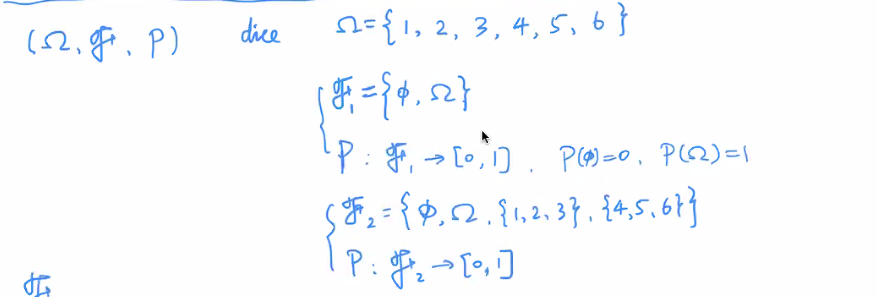 (Ω, ℱ, P) dice Ω={1, 2, 3, 4, 5, 6}
ℱ₁={ϕ, Ω}
P: ℱ₁→[0,1], P(ϕ)=0, P(Ω)=1
ℱ₂={ϕ, Ω, {1,2,3}, {4,5,6}}
P: ℱ₂→[0,1]
ℱ